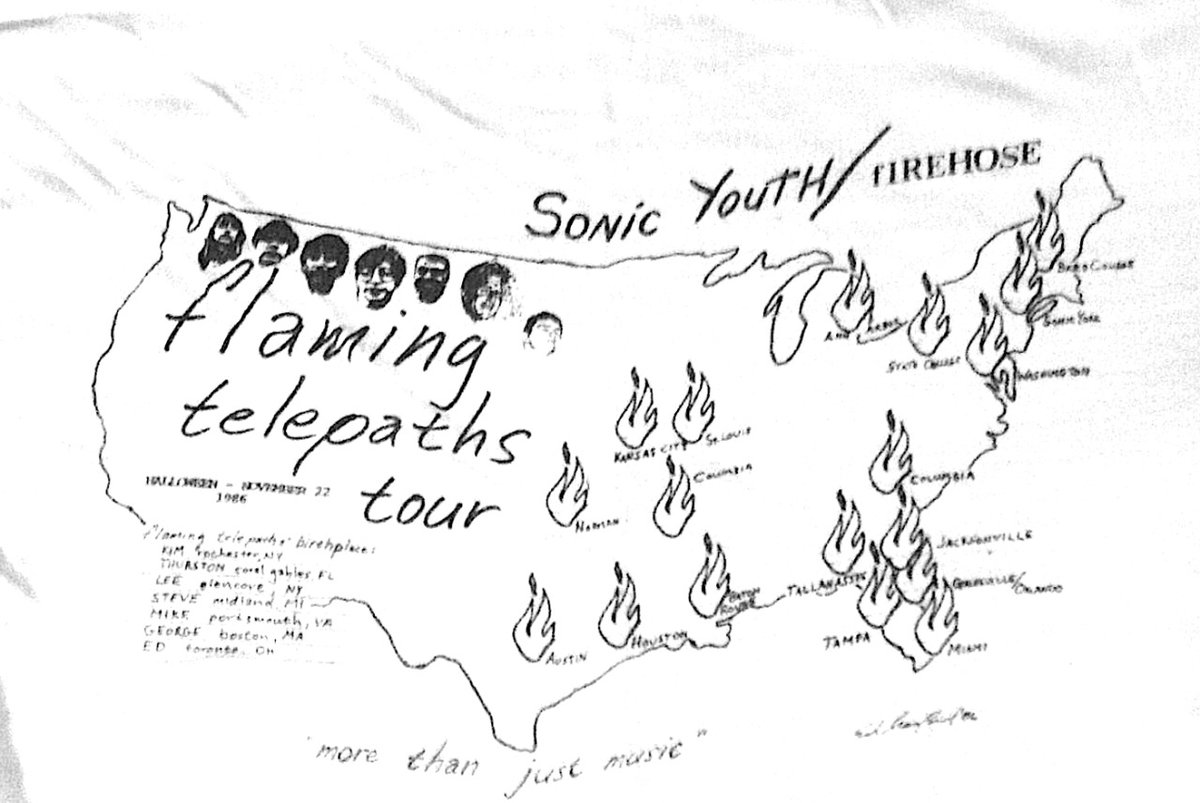 SONIC YOUTH/fIREHOSE
flaming
telepaths
tour
HALLOWEEN - NOVEMBER 22
1986
"flaming telepaths' birthplace:
KIM rochester, NY
THURSTON coral gables, FL
LEE glencove, NY
STEVE midland, MI
MIKE portsmouth, VA
GEORGE boston, MA
ED toronto, OH
BARD COLLEGE
NEW YORK
ANN ARBOR
STATE COLLEGE
WASHINGTON
KANSAS CITY
ST. LOUIS
COLUMBIA
NORMAN
COLUMBIA
JACKSONVILLE
TALLAHASSEE
GAINESVILLE/
ORLANDO
BATON
ROUGE
TAMPA
MIAMI
HOUSTON
AUSTIN
"more than just music"